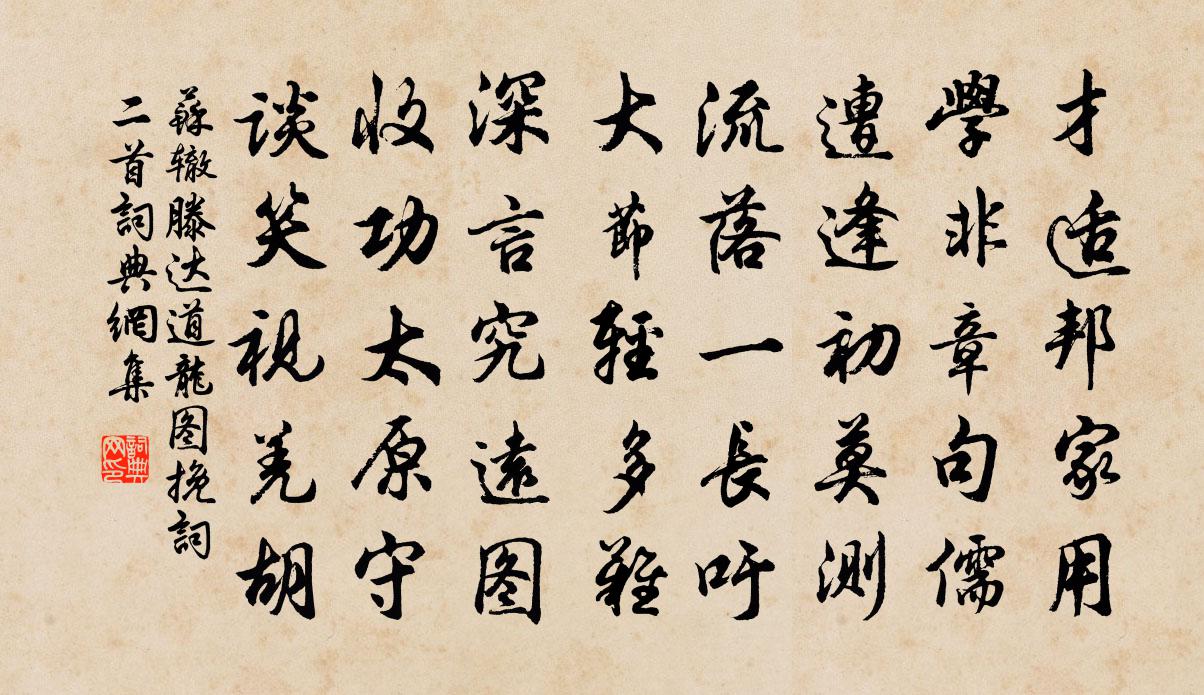 才适邦家用
學非章句儒
遭逢初莫測
流落一長吁
大節輕多難
深言究遠图
收功太原守
谈笑視羌胡
蘇辙滕达道龍图挽詞
二首詞典網集
詞典网印